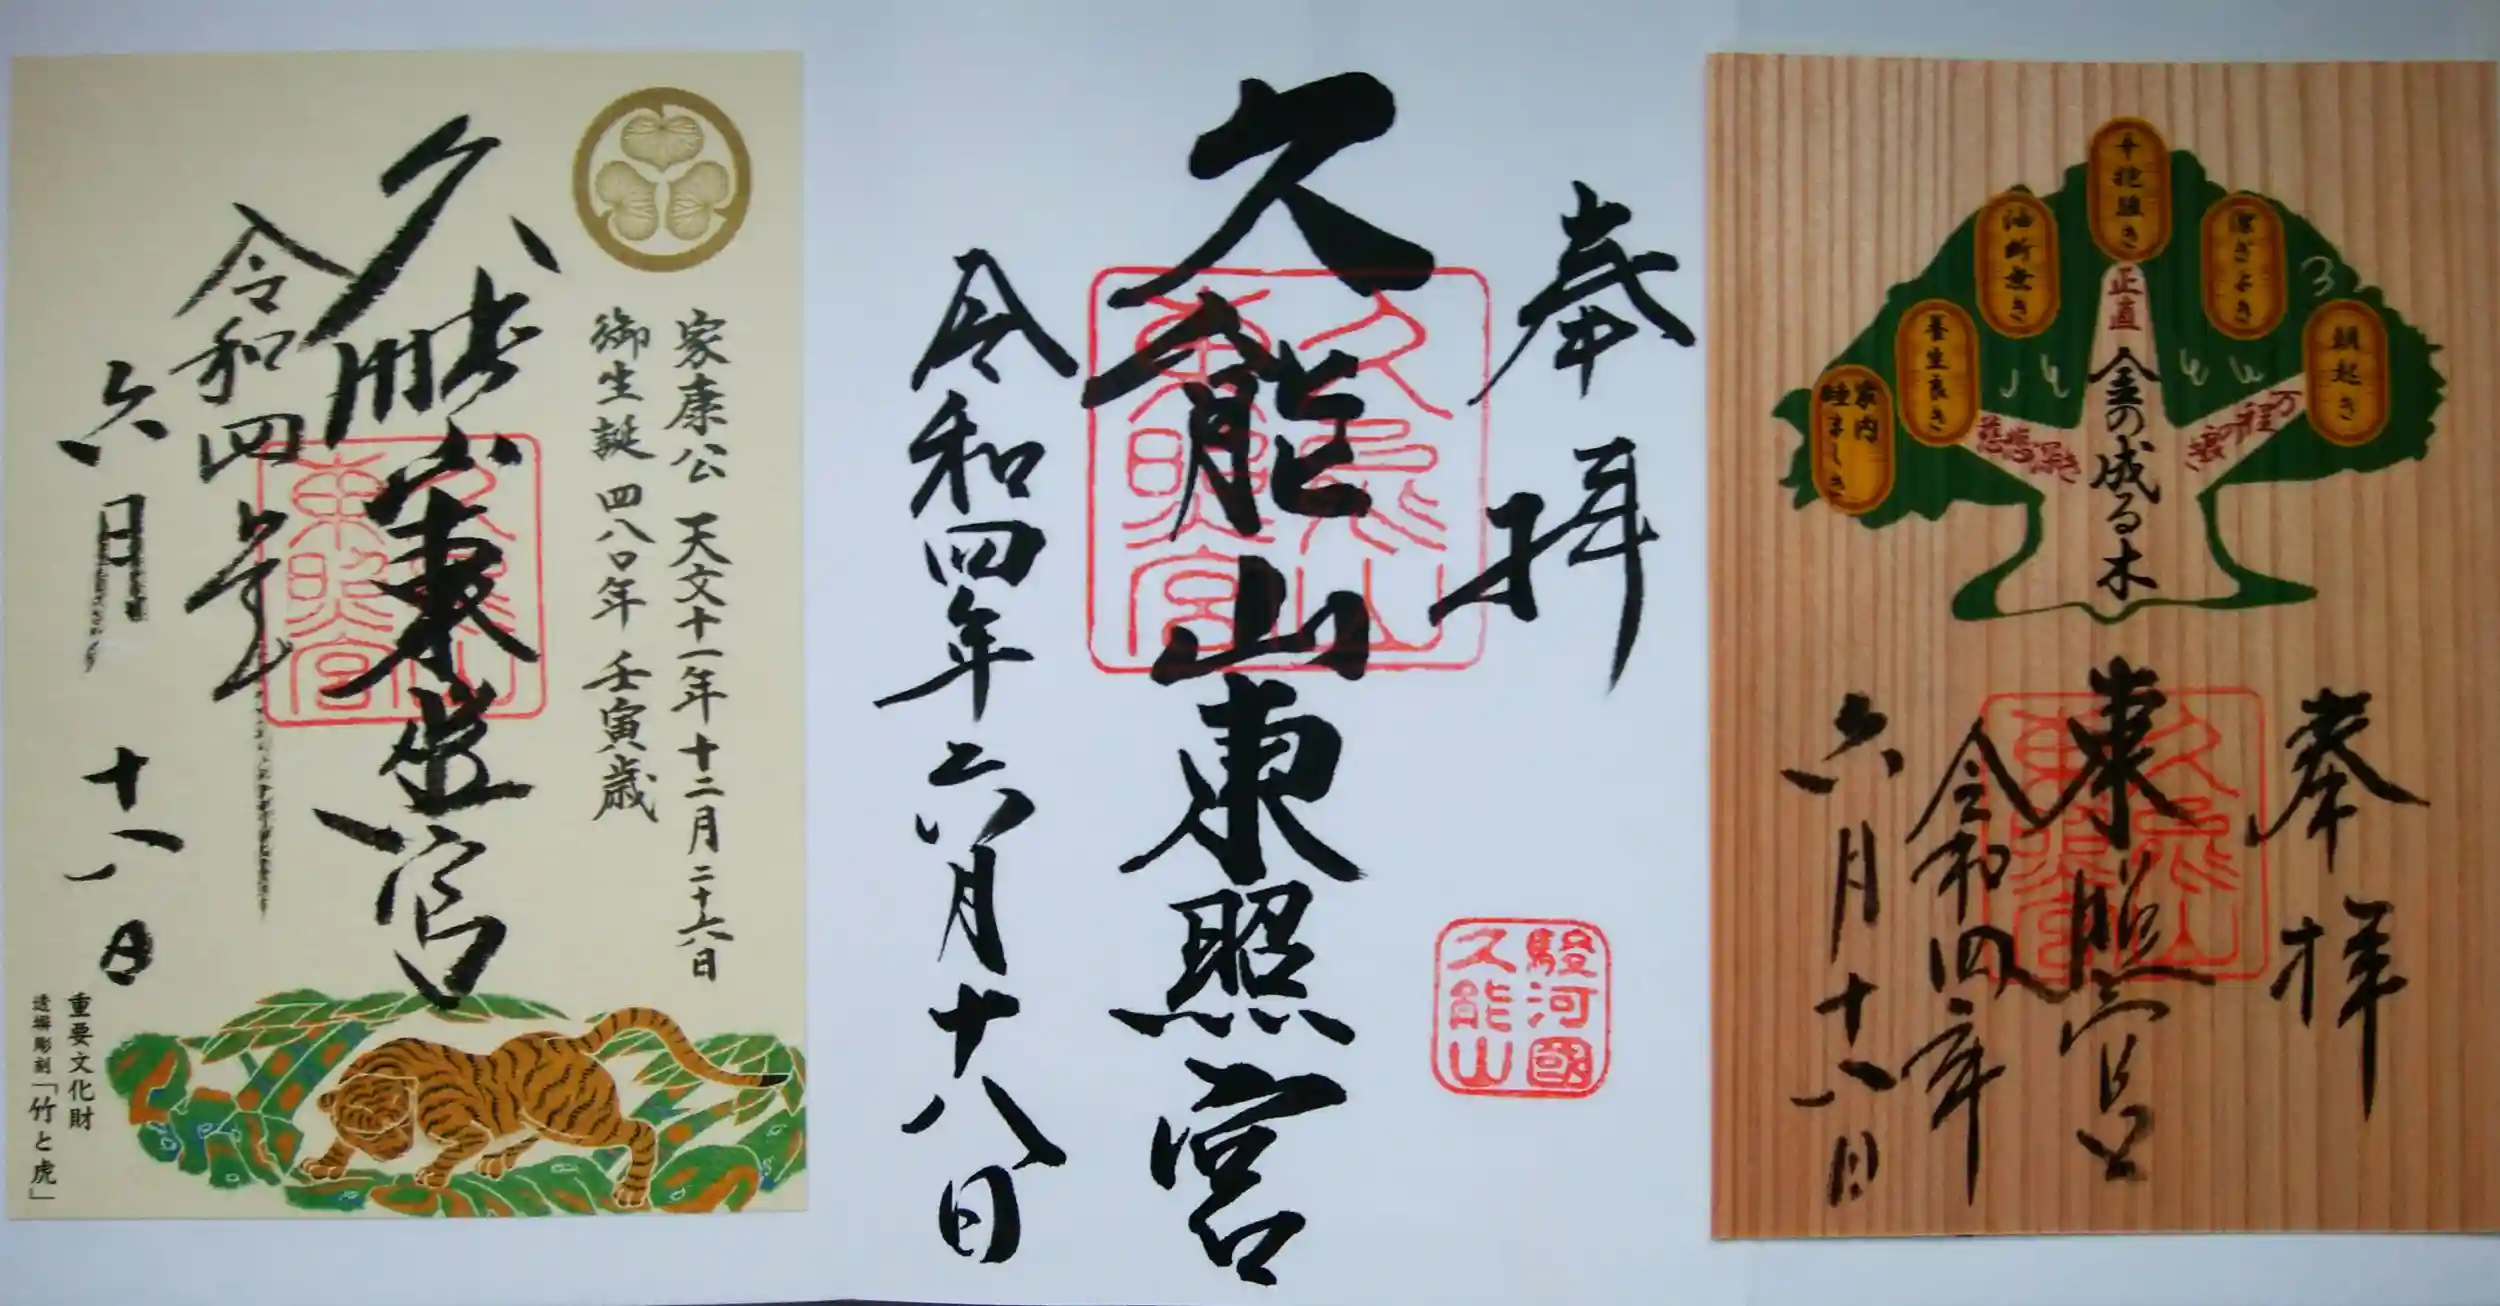 家康公 天文十一年 十二月二十六日
御生誕 四八〇年 壬寅歳
久能山東照宮
令和四年
六月 十八日
重要文化財
透塀彫刻「竹と虎」
奉拝
久能山東照宮
令和四年六月十八日
久能山
東照宮
駿河國
久能山
朝起き
潔ぎよき
辛抱強き
油断無き
養生良き
家内
睦ましき
万の程
正直
慈悲深き
金の成る木
奉拝
東照宮
令和四年
六月十八日